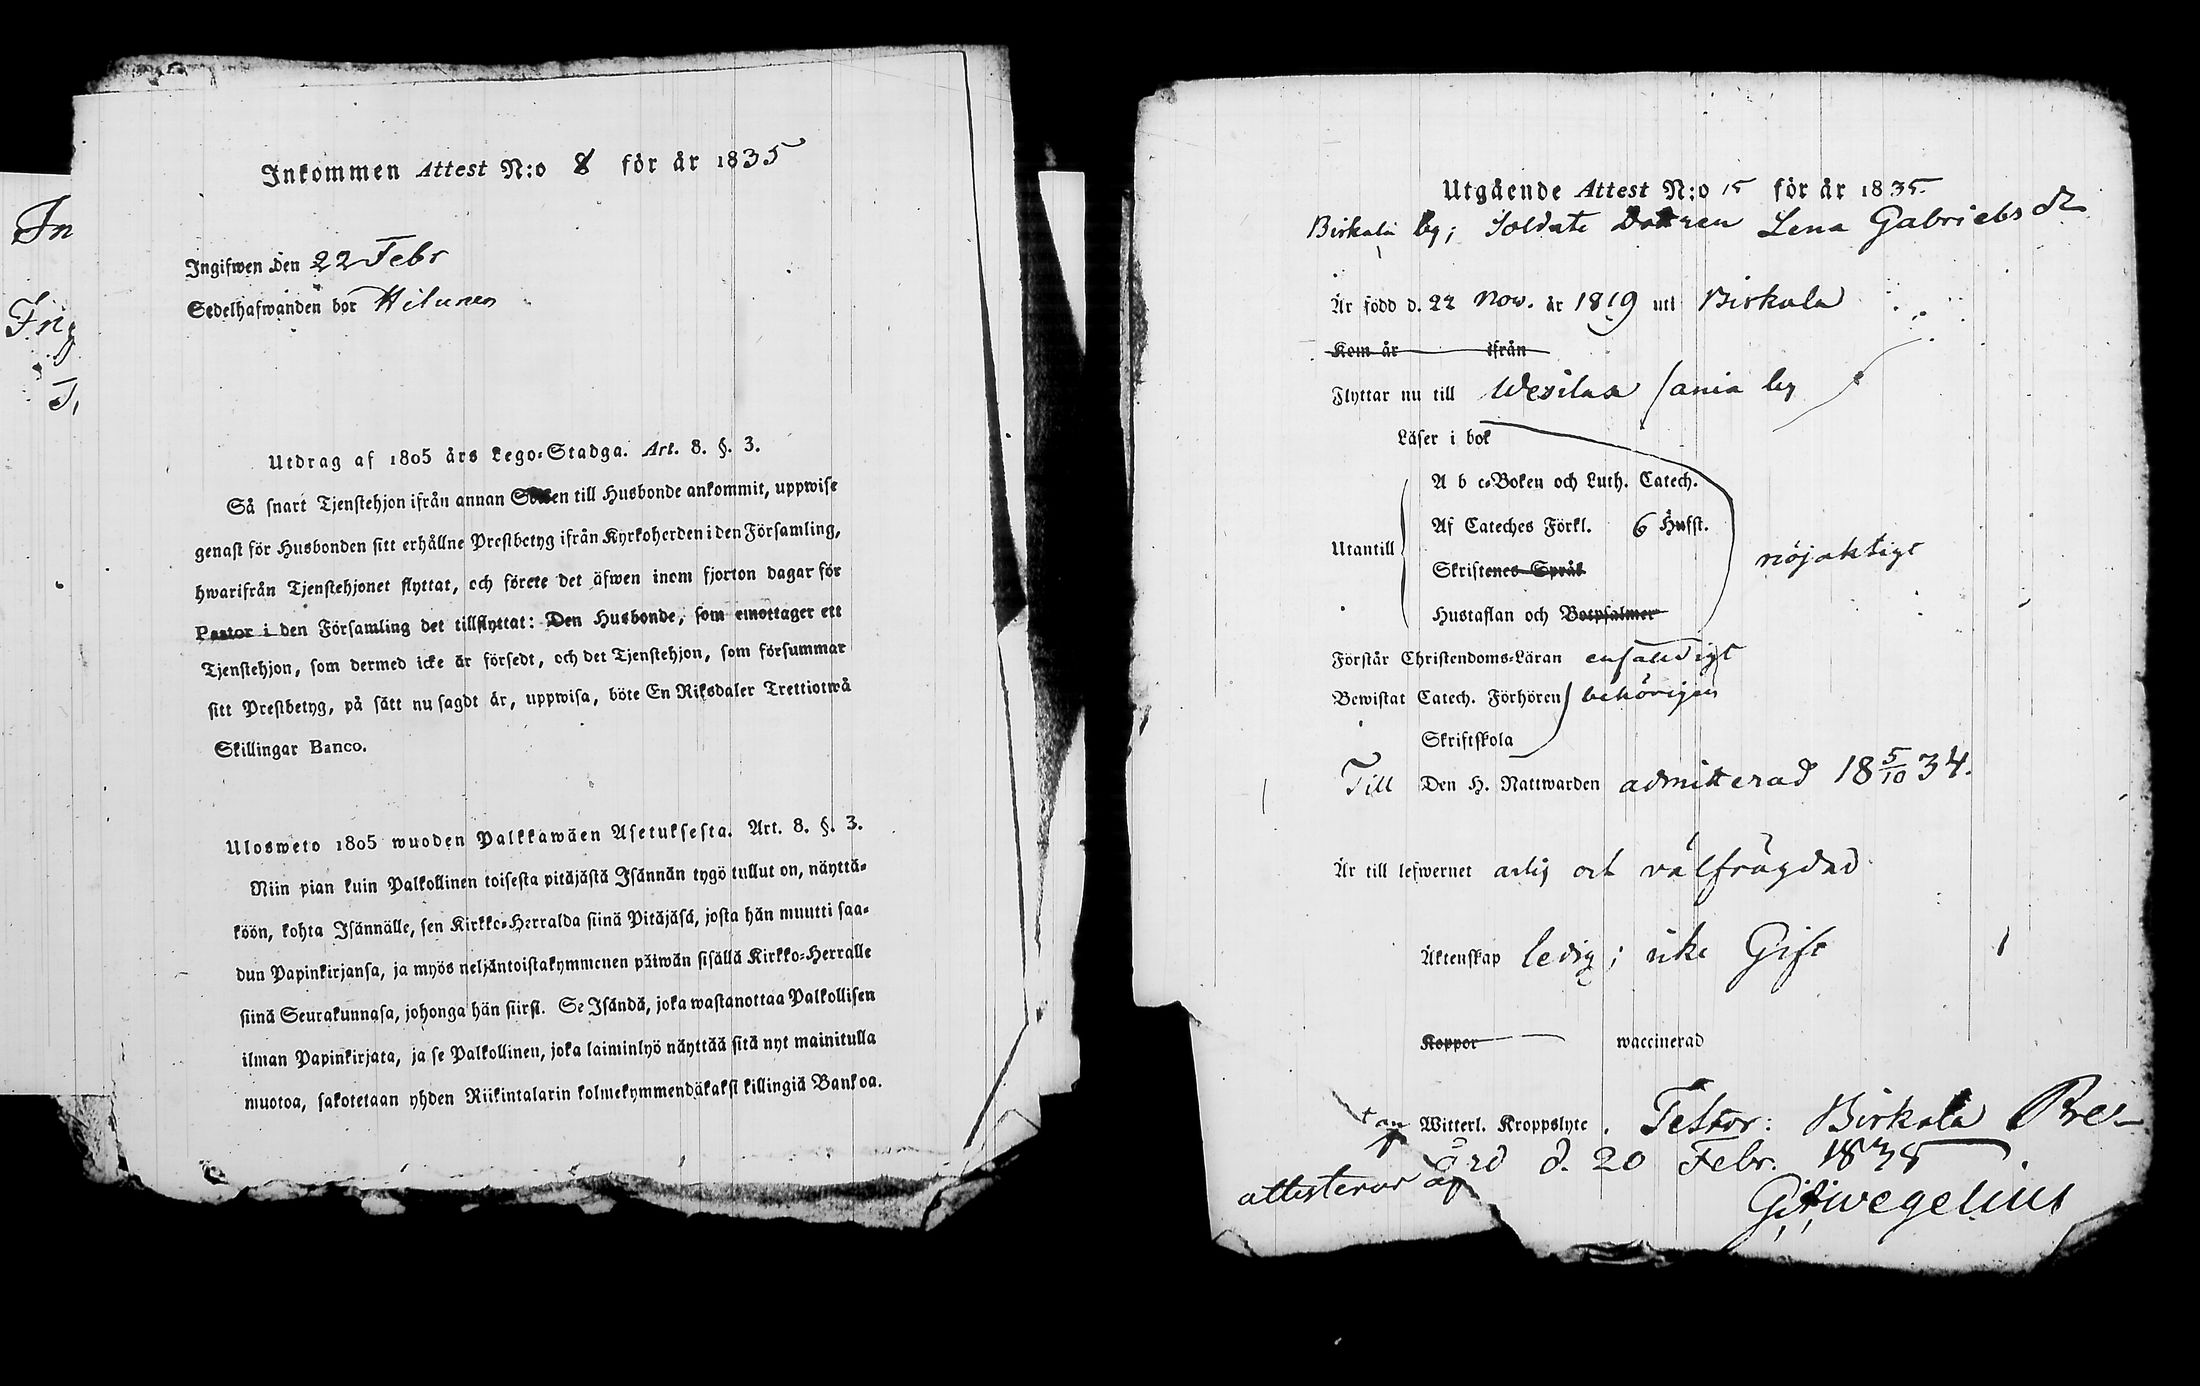 Inkommen Attest N:o 8 för år 1835
Ingifwen den 22 Febr
Sedelhafwanden bor Hilunen
Utdrag af 1805 års Lego-Stadga. Art. 8. §. 3.
Så snart Tjenstehjon ifrån annan Socken till Husbonde ankommit, uppwise
genast för Husbonden sitt erhållne Prestbetyg ifrån Kyrkoherden i den Församling,
hwarifrån Tjenstehjonet flyttat, och förete det äfwen inom fjorton dagar för
Pastor i den Församling det tillflyttat: Den Husbonde, som emottager ett
Tjenstehjon, som dermed icke är försedt, och det Tjenstehjon, som försummar
sitt Prestbetyg, på sätt nu sagdt är, uppwisa, böte En Riksdaler Trettiotwå
Skillingar Banco.
Ulosweto 1805 wuoden Palkkawäen Asetuksesta. Art. 8. §. 3.
Niin pian kuin Palkollinen toisesta pitäjästä Isännän tygö tullut on, näyttä-
köön, kohta Isännälle, sen Kirkko-Herralda siinä Pitäjäsä, josta hän muutti saa-
dun Papinkirjansa, ja myös neljäntoistakymmenen päiwän sisällä Kirkko-Herralle
siinä Seurakunnasa, johonga hän siirsi. Se Isändä, joka wastanottaa Palkollisen
ilman Papinkirjata, ja se Palkollinen, joka laiminlyö näyttää sitä nyt mainitulla
muotoa, sakotetaan yhden Riikintalarin kolmekymmendäkaksi killingiä Bankoa.
Utgående Attest N:o 15 för år 1835.
Birkala by; Soldate Dottren Lena Gabrielsdr
Är född d. 22 Nov. år 1819 uti Birkala
Kom år ifrån
Flyttar nu till Wesilax Sania by
Läser i bok
A b c-Boken och Luth. Catech.
Af Cateches Förkl. 6 Hufst.
Utantill
Skriftenes Språk
nöjaktigt
Hustaflan och Botpsalmer
Förstår Christendoms-Läran enfaldigt
Bewistat Catech. Förhören behörigen
Skriftskola
Till Den H. Nattwarden admitterad 18 5/10 34.
Är till lefwernet ärlig och välfrägdad
Äktenskap ledig; icke Gift
Koppor waccinerad
utan Witterl. Kroppslyte. Testor: Birkala Pre-
stgård d. 20 Febr. 1835
attesterar af
Wegelius